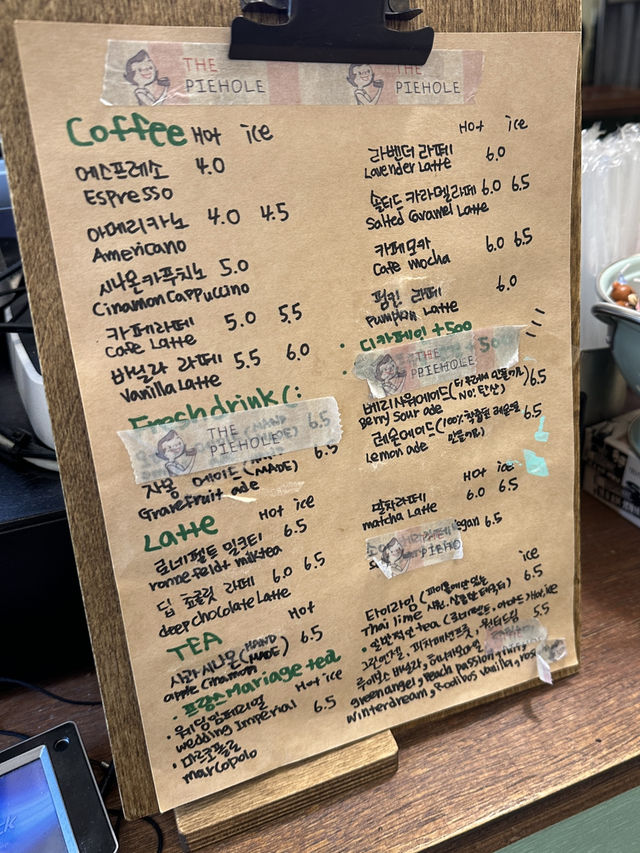 THE PIEHOLE
THE PIEHOLE
Coffee Hot ice
에스프레소 4.0
Espresso
아메리카노 4.0 4.5
Americano
시나몬카푸치노 5.0
Cinamon Cappuccino
카페라떼 5.0 5.5
Cafe Latte
바닐라 라떼 5.5 6.0
Vanilla Latte
Hot ice
라벤더 라떼 6.0
Lavender Latte
솔티드 카라멜라떼 6.0 6.5
Salted Caramel Latte
카페모카 6.0 6.5
Cafe mocha
펌킨 라떼 6.0
Pumpkin Latte
디카페인 +500
THE PIEHOLE
Fresh drink
6.5
THE PIEHOLE
6.5
자몽 에이드 (MADE)
Grapefruit ade
베리사워에이드 6.5
Berry Sour ade
레몬에이드 (100% 착즙 레몬 6.5
Lemon ade
Latte Hot ice
로네펠트 밀크티 6.5
ronnefeldt milktea
딥 초콜릿 라떼 6.0 6.5
deep chocolate Latte
Hot ice
말차라떼 6.0 6.5
matcha Latte
6.5
PIEHO
TEA Hot
사과시나몬 (HAND MADE) 6.5
apple cinamon
· 프랑스 Mariage tea
Hot ice
· 웨딩임페리얼 6.5
wedding Imperial
· 마르코폴로
marcopolo
ice
타이라임 6.5
Thai lime
Hot, ice
5.5
그린엔젤, 피치패션프룻, 윈터드림
루이보스 바닐라,
green angel, Peach passion fruit,
winterdream, Rooibos vanilla,